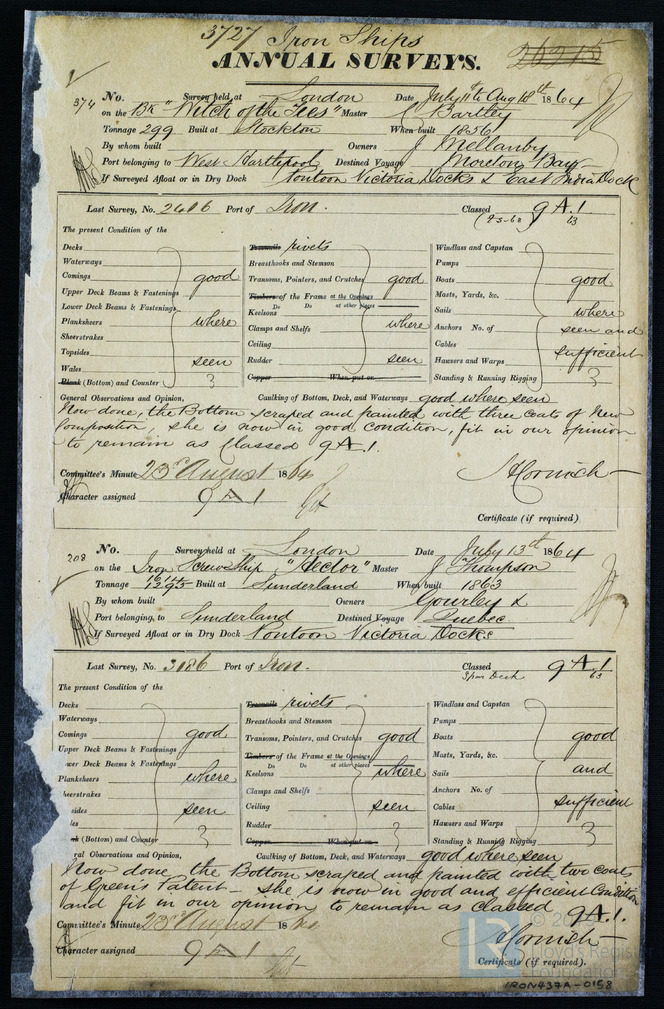 3727 Iron Ships
ANNUAL SURVEYS.
374 No. Survey held at London Date July 11th Aug 18th 1864
on the Bk "Witch of the Tees" Master Bartley
Tonnage 299 Built at Stockton When built 1856
By whom built Owners J Mellanby
Port belonging to West Hartlepool Destined Voyage Moreton Bay
If Surveyed Afloat or in Dry Dock Pontoon Victoria Docks & East India Dock
Last Survey, No. 2616 Port of Iron. Classed 9 A.1
13
The present Condition of the
Decks Treenails rivets Windlass and Capstan
Waterways Breasthooks and Stemson Pumps
Comings good Transoms, Pointers, and Crutches good Boats good
Upper Deck Beams & Fastenings Timbers of the Frame at the Openings Masts, Yards, &c.
Lower Deck Beams & Fastenings Do Do at other places Sails where
Keelsons
Planksheers where Clamps and Shelfs where Anchors No. of seen and
Sheerstrakes Ceiling Cables sufficient
Topsides seen Rudder seen Hawsers and Warps
Wales
Plank (Bottom) and Counter Copper When put on Standing & Running Rigging
General Observations and Opinion, Caulking of Bottom, Deck, and Waterways good where seen
Now done, the Bottom scraped and painted with three coats of New
Composition, she is now in good condition, fit in our opinion
to remain as Classed 9 A 1.
Committee's Minute 23rd August 1864
Character assigned 9 A 1
Certificate (if required)
208 No. Survey held at London Date July 13th 1864
on the Iron Screw Ship "Hector" Master J Thompson
Tonnage Built at Sunderland When built 1863
By whom built Owners Gourley &
Port belonging, to Sunderland Destined Voyage Quebec
If Surveyed Afloat or in Dry Dock Pontoon Victoria Docks
Last Survey, No. 3186 Port of Iron. Classed 9 A 1
Spar Deck 63
The present Condition of the
Decks Treenails rivets Windlass and Capstan
Waterways Breasthooks and Stemson Pumps
Comings good Transoms, Pointers, and Crutches good Boats good
Upper Deck Beams & Fastenings Timbers of the Frame at the Openings Masts, Yards, &c.
wer Deck Beams & Fastenings Do Do at other places
Planksheers where Keelsons where Sails and
heerstrakes Clamps and Shelfs Anchors No. of
sides seen Ceiling seen Cables sufficient
les Rudder Hawsers and Warps
nk (Bottom) and Counter Copper When put on Standing & Running Rigging
ral Observations and Opinion, Caulking of Bottom, Deck, and Waterways good where seen
Now done, the Bottom scraped and painted with two coats
of Greens Patent – she is now in good and efficient Condition
and fit in our opinion to remain as classed 9 A.1.
Committee's Minute 23rd August 18
Character assigned 9 A 1
Certificate (if required).
Lloyd's Register
Foundation
IRON437A-0158